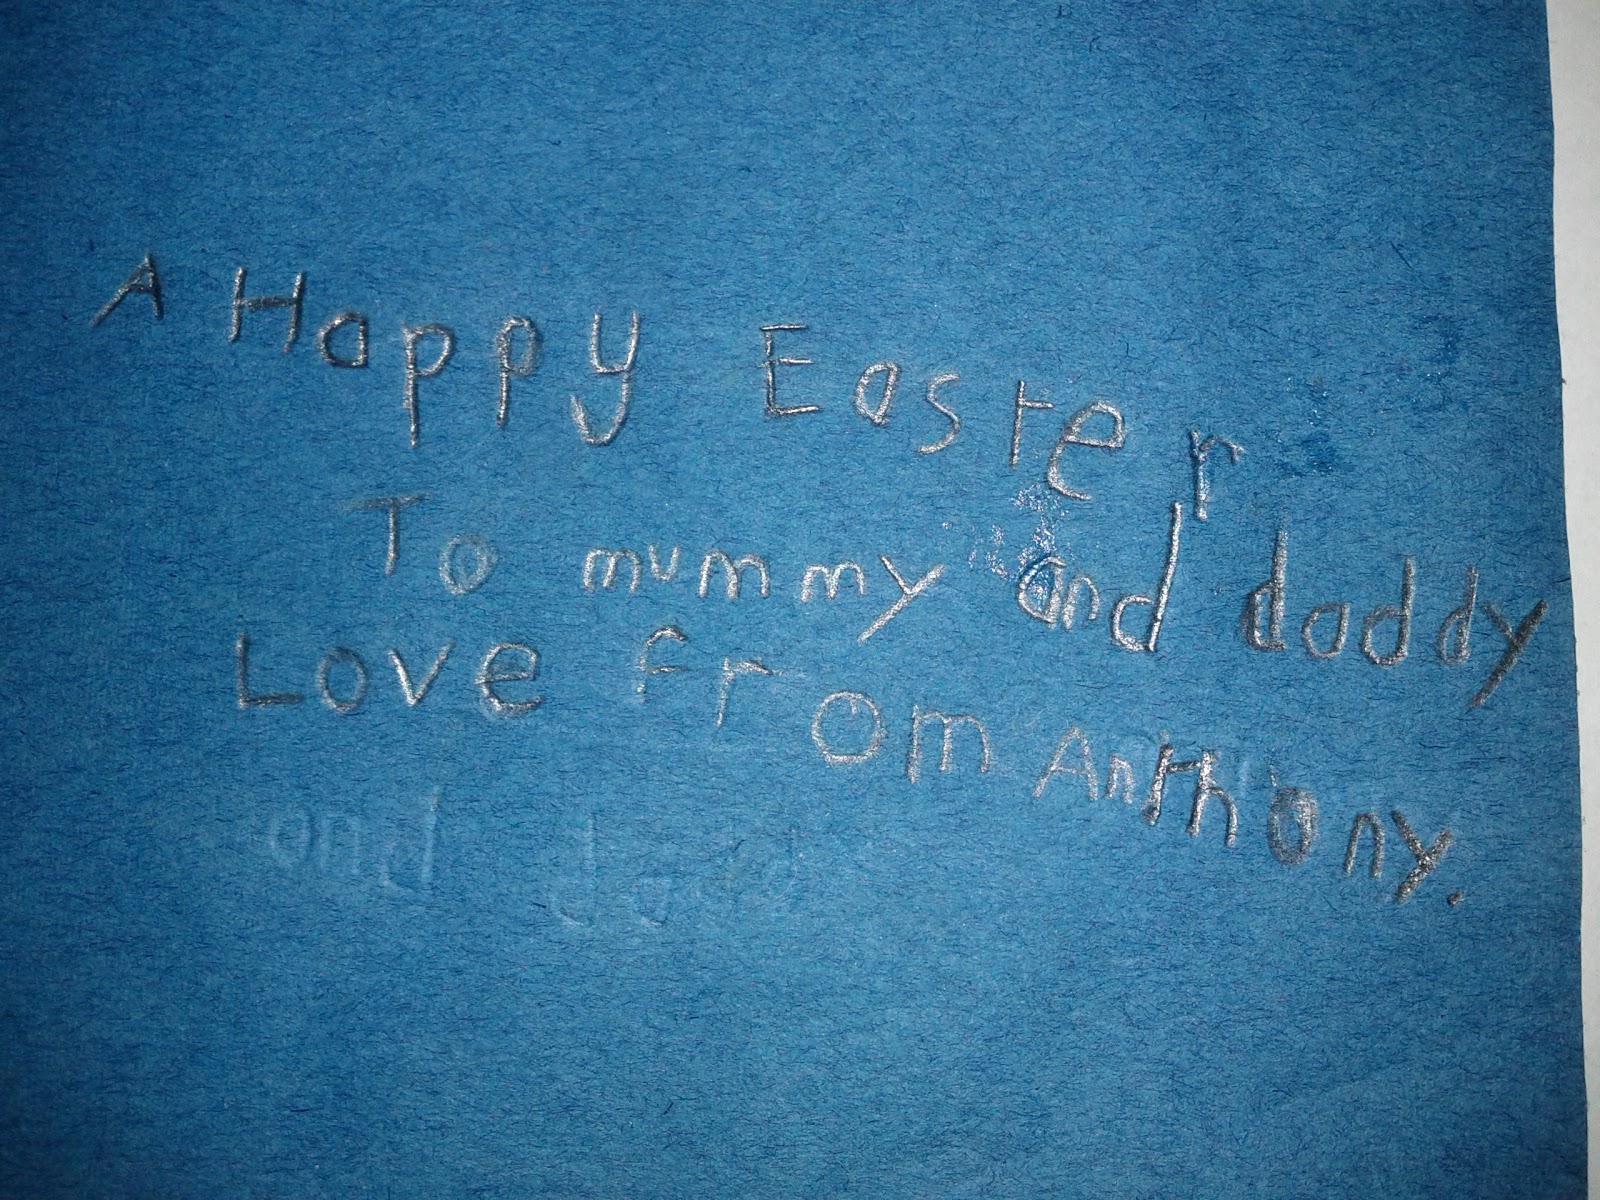 A Happy Easter
To mummy and daddy
Love from Anthony.
and dadd